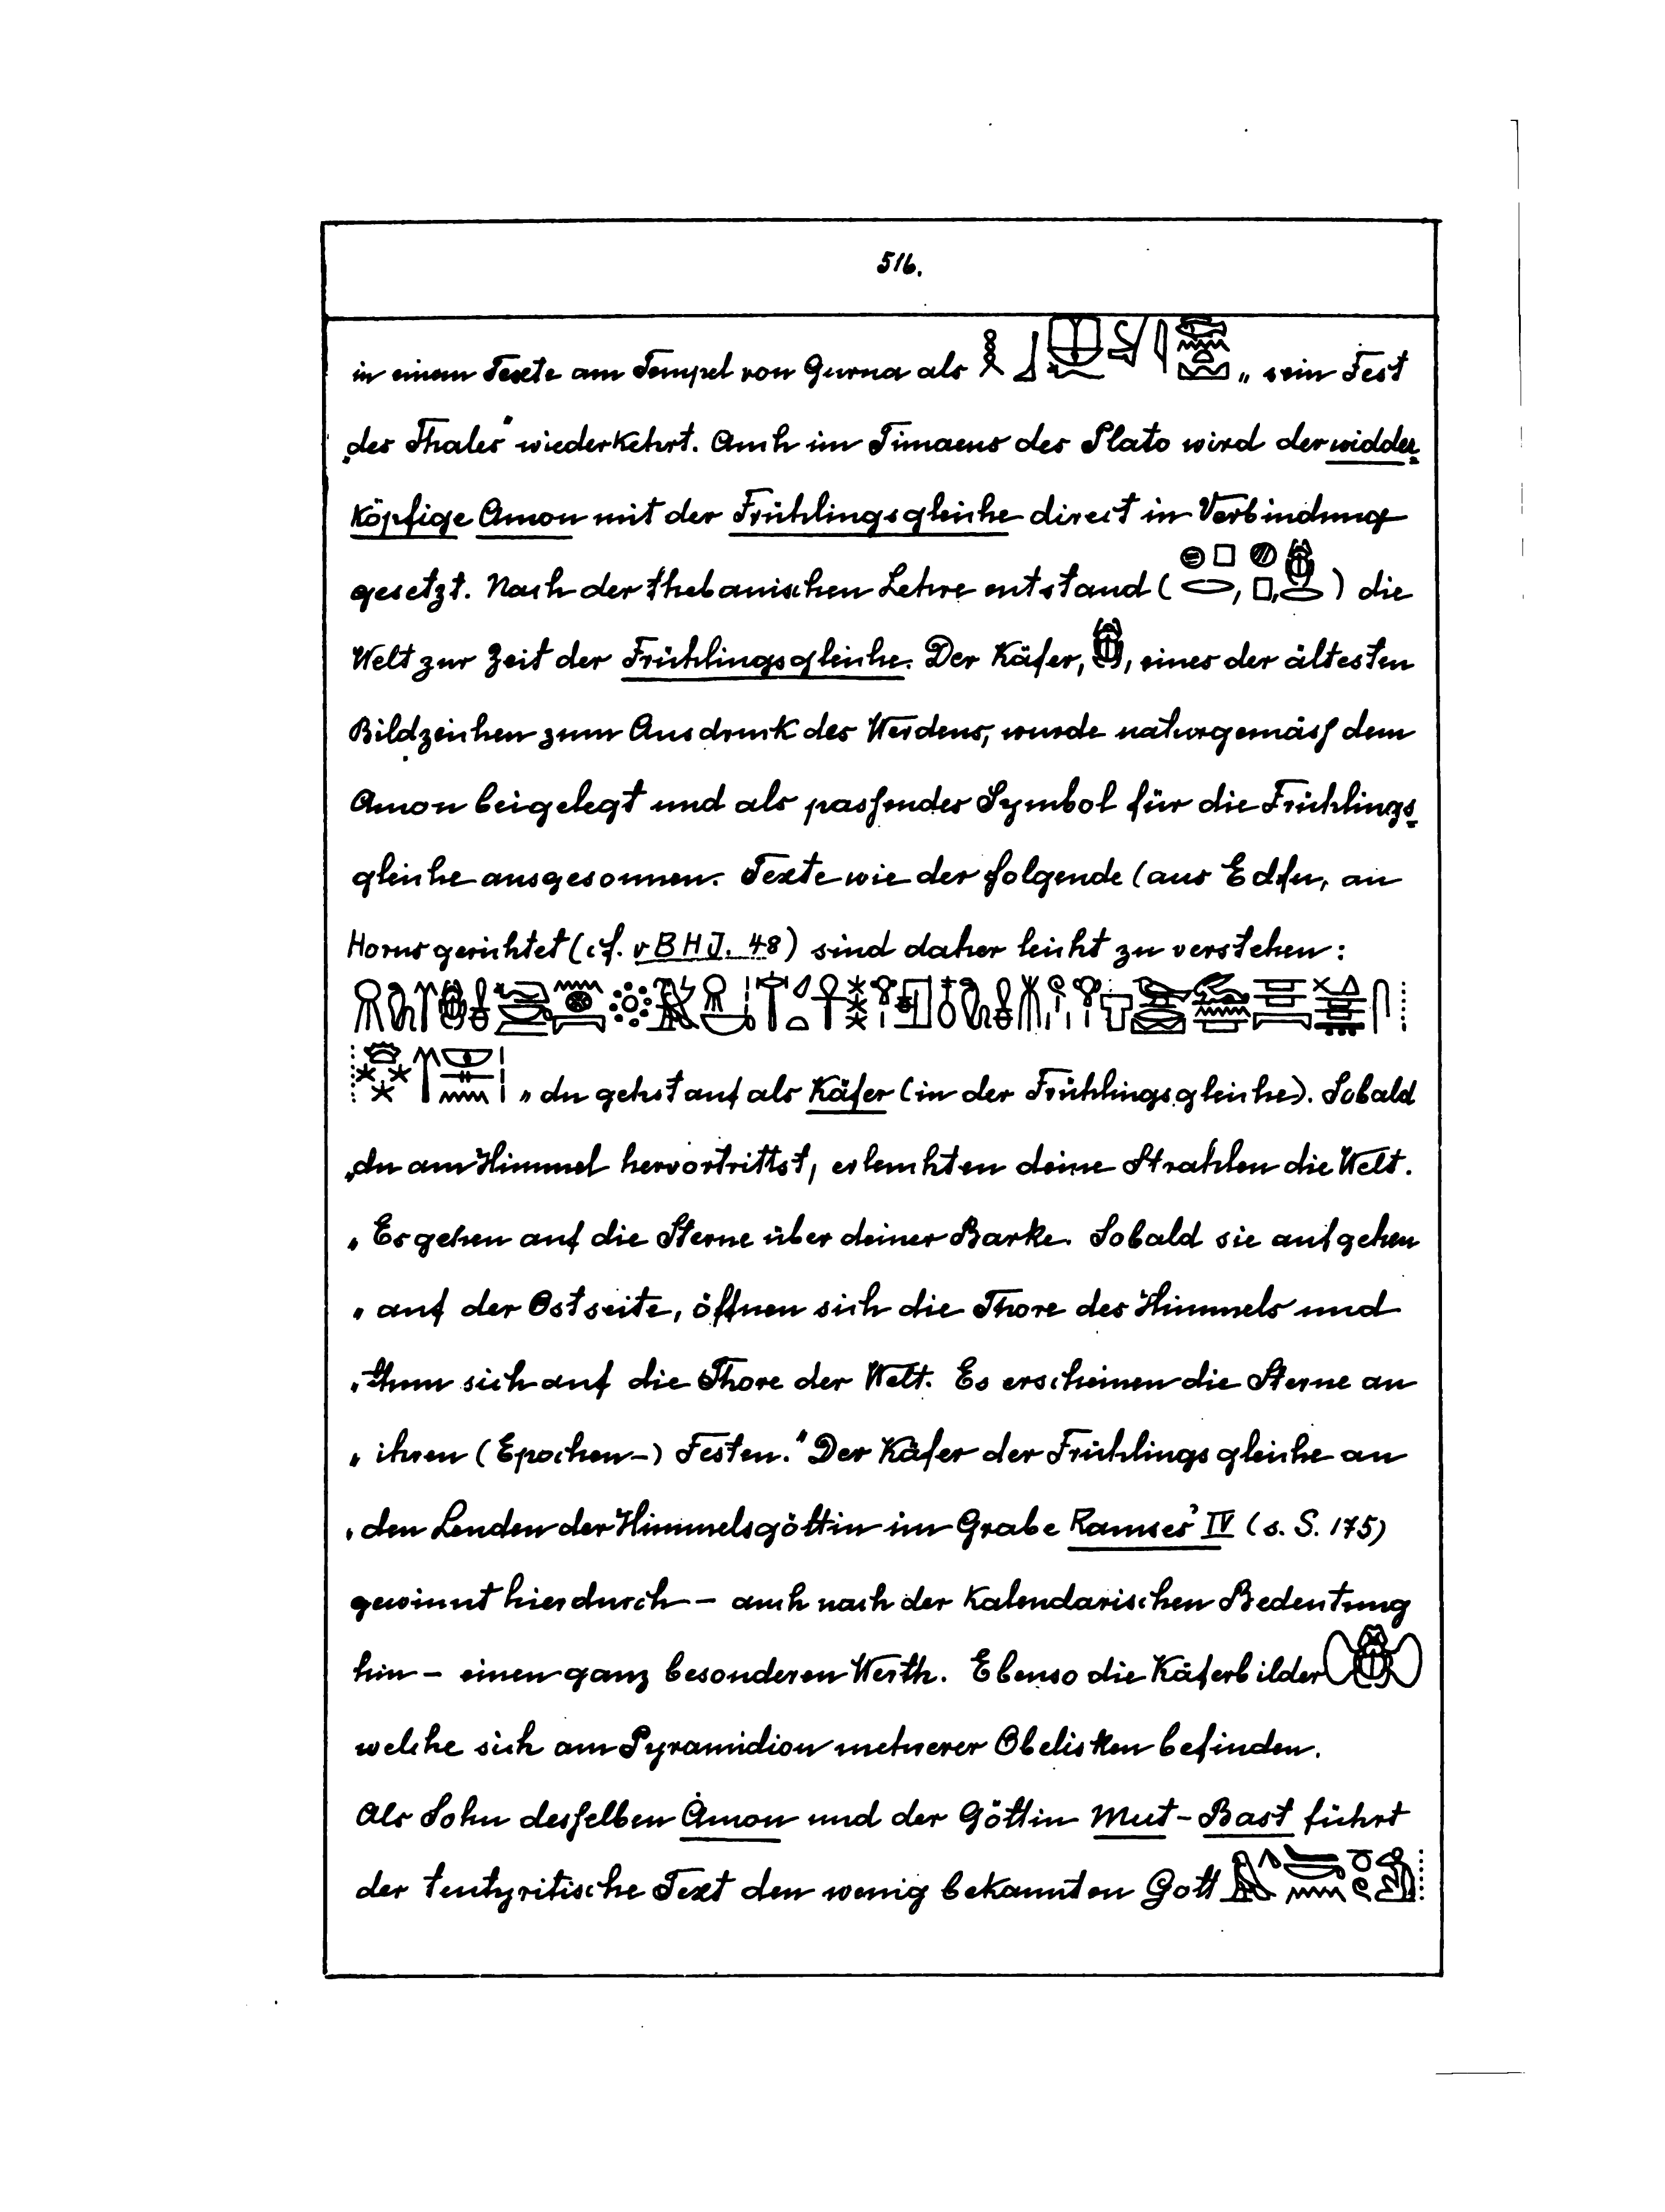 516.
in einem Texte am Tempel von Gurna als „sein Fest
„des Thales“ wiederkehrt. Auch im Timaeus des Plato wird der widder-
köpfige Amon mit der Frühlingsgleiche direct in Verbindung
gesetzt. Nach der thebanischen Lehre entstand ( , , ) die
Welt zur Zeit der Frühlingsgleiche. Der Käfer, , eines der ältesten
Bildzeichen zum Ausdruck des Werdens, wurde naturgemäss dem
Amon beigelegt und als passendes Symbol für die Frühlings-
gleiche ausgesonnen. Texte wie der folgende (aus Edfu, an
Horus gerichtet (cf. v BHJ. 48) sind daher leicht zu verstehen:
„du gehst auf als Käfer (in der Frühlingsgleiche). Sobald
„du am Himmel hervortrittst, erleuchten deine Strahlen die Welt.
„Es gehen auf die Sterne über deiner Barke. Sobald sie aufgehen
„auf der Ostseite, öffnen sich die Thore des Himmels und
„thun sich auf die Thore der Welt. Es erscheinen die Sterne an
„ihren (Epochen-) Festen.“ Der Käfer der Frühlingsgleiche an
„den Lenden der Himmelsgöttin im Grabe Ramses' IV (s. S. 175)
gewinnt hierdurch – auch nach der kalendarischen Bedeutung
hin – einen ganz besonderen Werth. Ebenso die Käferbilder
welche sich am Pyramidion mehrerer Obelisken befinden.
Als Sohn desselben Amon und der Göttin Mut-Bast führt
der tentyritische Text den wenig bekannten Gott